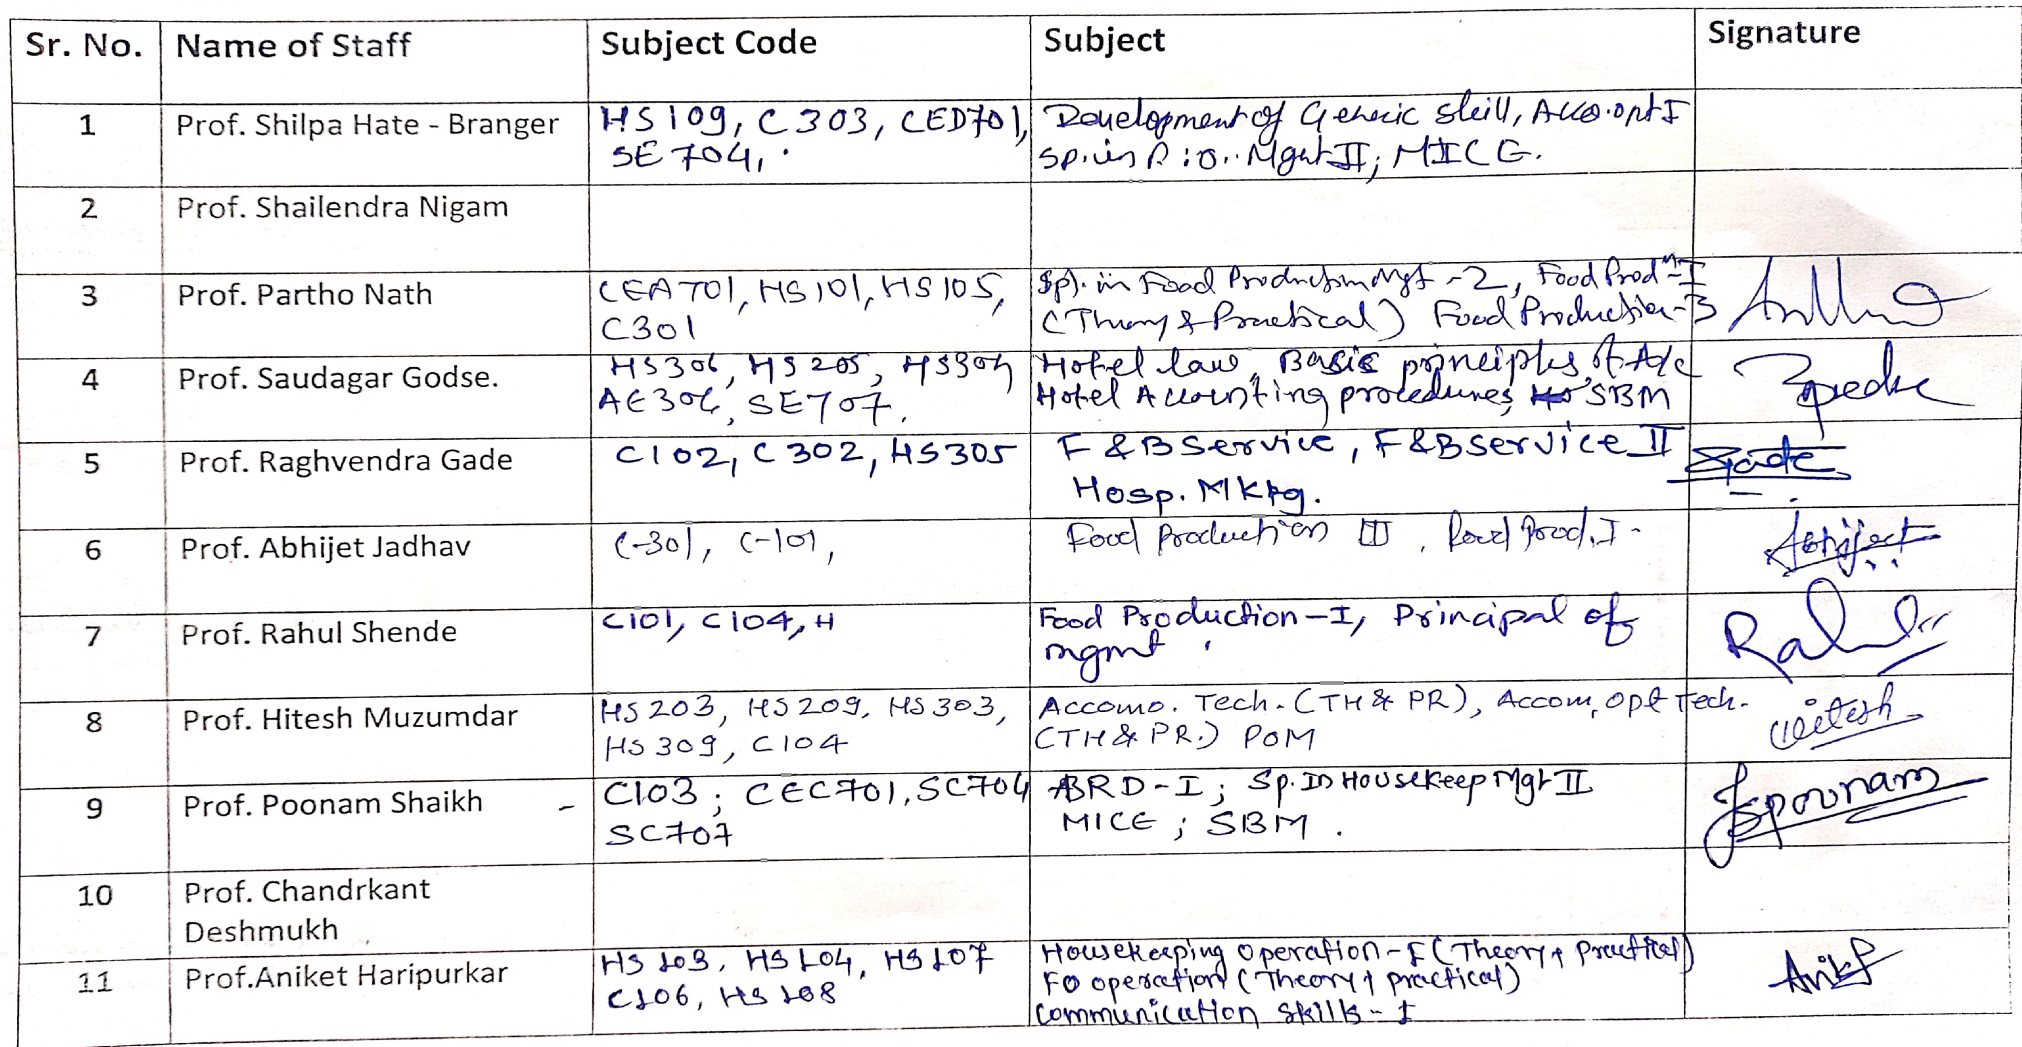 Sr. No. Name of Staff Subject Code Subject Signature
1 Prof. Shilpa Hate - Branger HS109, C303, CED701, Development of Generic skill, Acco.opt I
SE704, Sp. in Mgmt II, MICE.
2 Prof. Shailendra Nigam
3 Prof. Partho Nath CEA701, HS101, HS105, Spl. in Food Production Mgt -2, Food Prodn-I
C301 (Theory & Practical) Food Production-3
4 Prof. Saudagar Godse. HS306, HS205, HS304 Hotel law, Basic principles of A/c
AE306, SE707. Hotel Accounting procedures, SBM
5 Prof. Raghvendra Gade C102, C302, HS305 F & B Service, F&B service II Gade
Hosp. Mktg.
6 Prof. Abhijet Jadhav C-301, C-101, Food Production III, Food Prod. I - Abhijeet
7 Prof. Rahul Shende C101, C104, H Food Production-I, Principal of
mgmt
8 Prof. Hitesh Muzumdar HS203, HS209, HS303, Accomo. Tech. (TH & PR), Accom. opt Tech. Hitesh
HS309, C104 (TH & PR.) POM
9 Prof. Poonam Shaikh - C103; CEC701, SC704 ABRD-I; Sp. In Housekeep Mgt II Spoonam
SC707 MICE; SBM.
10 Prof. Chandrkant
Deshmukh
11 Prof.Aniket Haripurkar HS103, HS104, HS107 Housekeeping Operation-I (Theory & Practical)
C106, HS108 FO operation (Theory & practical)
Communication Skills-I